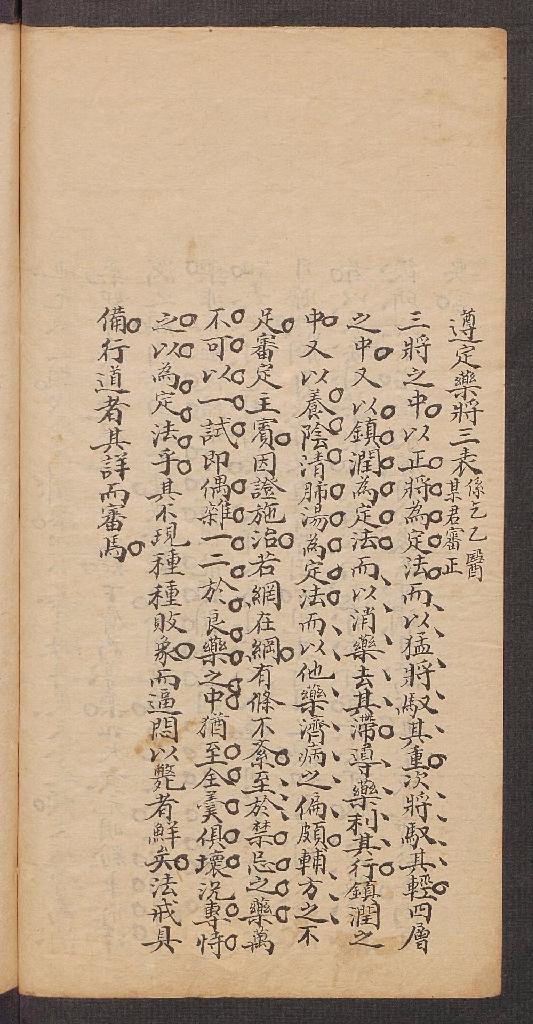 遵定藥將三表
係乞乙醫
某君審正
三將之中以正將為定法而以猛將馭其重次將馭其輕四層
之中又以鎮潤為定法而以消藥去其滯導藥利其行鎮潤之
中又以養陰清肺湯為定法而以他藥濟病之偏頗輔方之不
足審定主賓因證施治若網在綱有條不紊至於禁忌之藥萬
不可以一試即偶雜一二於良藥之中猶至全羹俱壞況專恃
之以為定法乎其不現種種敗象而逼悶以斃者鮮矣法戒具
備行道者其詳而審焉